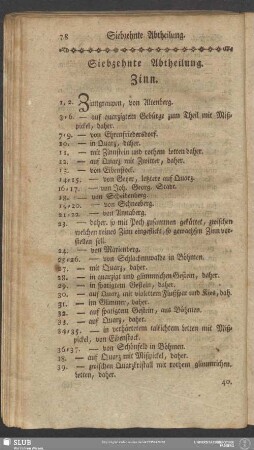 78 Siebzehnte Abtheilung.
Siebzehnte Abtheilung.
Zinn.
1, 2. Zinngraupen, von Altenberg.
3-6. — auf quarzigtem Gebürge zum Theil mit Miß-
pickel, daher.
7-9. — von Ehrenfriedersdorf.
10. — in Quarz, daher.
11. — mit Zinnstein und rothem Letten daher.
12. — auf Quarz mit Zwitter, daher.
13. — von Eibenstock.
14-15. — von Geyer, letztere auf Quarz.
16-17. — von Joh. Georg. Stadt.
18. — von Scheibenberg.
19-20. — von Schneeberg.
21-22. — von Annaberg.
23. — daher, so mit Pech zusammen geküttet, zwischen
welchen reines Zinn eingeflickt, so gewachsen Zinn vor-
stellen soll.
24. — von Marienberg.
25-26. — von Schlackenwalde in Böhmen.
27. — mit Quarz, daher.
28. — in quarzigt und glimmrichen Gestein, daher.
29. — in spatigtem Gestein, daher.
30. — auf Quarz, mit violettem Flußspat und Kies, dah.
31. — im Glimmer, daher.
32. — auf spatigtem Gestein, aus Böhmen.
33. — auf Quarz, daher.
34-35. — in verhärtetem talkichtem Letten mit Miß-
pickel, von Eibenstock.
36-37. — von Schönfeld in Böhmen.
38. — auf Quarz mit Mißpickel, daher.
39. — zwischen Quarzkristall mit rothem glimmrichen
Letten, daher.
40.
SLUB